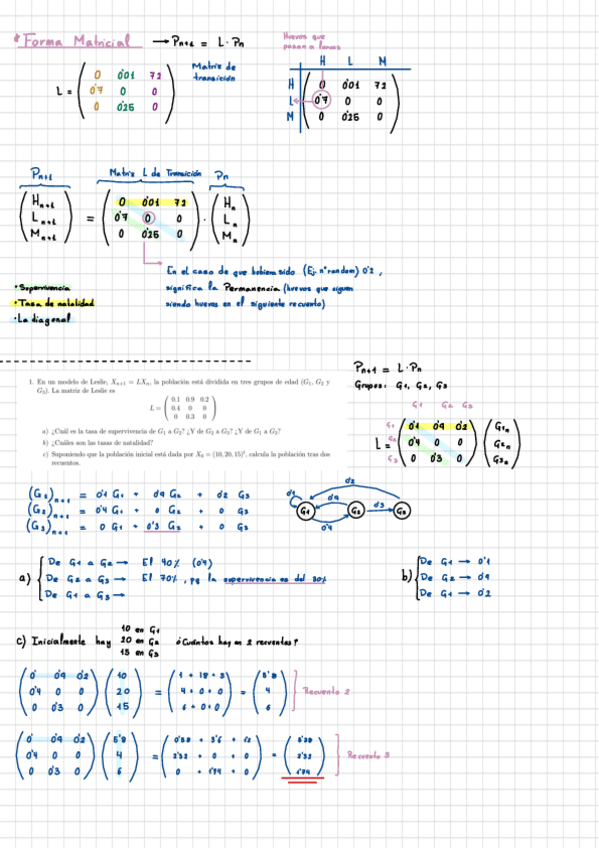 * Forma Matricial → Pn+1 = L · Pn
Huevos que pasan a larvas
L = ( 0 0'01 72
0'7 0 0
0 0'25 0 )
Matriz de transición
H L M
H ( 0 0'01 72
L 0'7 0 0
M 0 0'25 0 )
Pn+1 Matriz L de Transición Pn
( Hn+1 Ln+1 Mn+1 ) = ( 0 0'01 72
0'7 0 0
0 0'25 0 ) · ( Hn Ln Mn )
En el caso de que hubiera sido (Ej. nº random) 0'2,
significa la Permanencia (huevos que siguen
siendo huevos en el siguiente recuento)
• Supervivencia
• Tasa de natalidad
• La diagonal
1. En un modelo de Leslie, Xn+1 = LXn, la población está dividida en tres grupos de edad (G1, G2 y
G3). La matriz de Leslie es
L = ( 0.1 0.9 0.2
0.4 0 0
0 0.3 0 )
a) ¿Cuál es la tasa de supervivencia de G1 a G2? ¿Y de G2 a G3? ¿Y de G1 a G3?
b) ¿Cuáles son las tasas de natalidad?
c) Suponiendo que la población inicial está dada por X0 = (10, 20, 15)t, calcula la población tras dos
recuentos.
Pn+1 = L · Pn
Grupos: G1, G2, G3
G1 G2 G3
L = G1 G2 G3 ( 0'1 0'9 0'2
0'4 0 0
0 0'3 0 ) ( G1n G2n G3n )
(G1)n+1 = 0'1 G1 + 0'9 G2 + 0'2 G3
(G2)n+1 = 0'4 G1 + 0 G2 + 0 G3
(G3)n+1 = 0 G1 + 0'3 G2 + 0 G3
0'2
0'1 0'9 0'3
G1 G2 G3
0'4
a) De G1 a G2 → El 40% (0'4)
De G2 a G3 → El 70%, pq la supervivencia es del 30%
De G1 a G3 →
b) De G1 → 0'1
De G2 → 0'9
De G1 → 0'2
c) Inicialmente hay 10 en G1
20 en G2
15 en G3
¿Cuántos hay en 2 recuentos?
( 0' 0'9 0'2
0'4 0 0
0 0'3 0 ) ( 10 20 15 ) = ( 1 + 18 + 3
4 + 0 + 0
6 + 0 + 0 ) = ( 5'8 4 6 ) Recuento 2
( 0 0'9 0'2
0'4 0 0
0 0'3 0 ) ( 5'8 4 6 ) = ( 0'58 + 3'6 + 1'2
2'32 + 0 + 0
0 + 1'74 + 0 ) = ( 5'38 2'32 1'74 ) Recuento 3